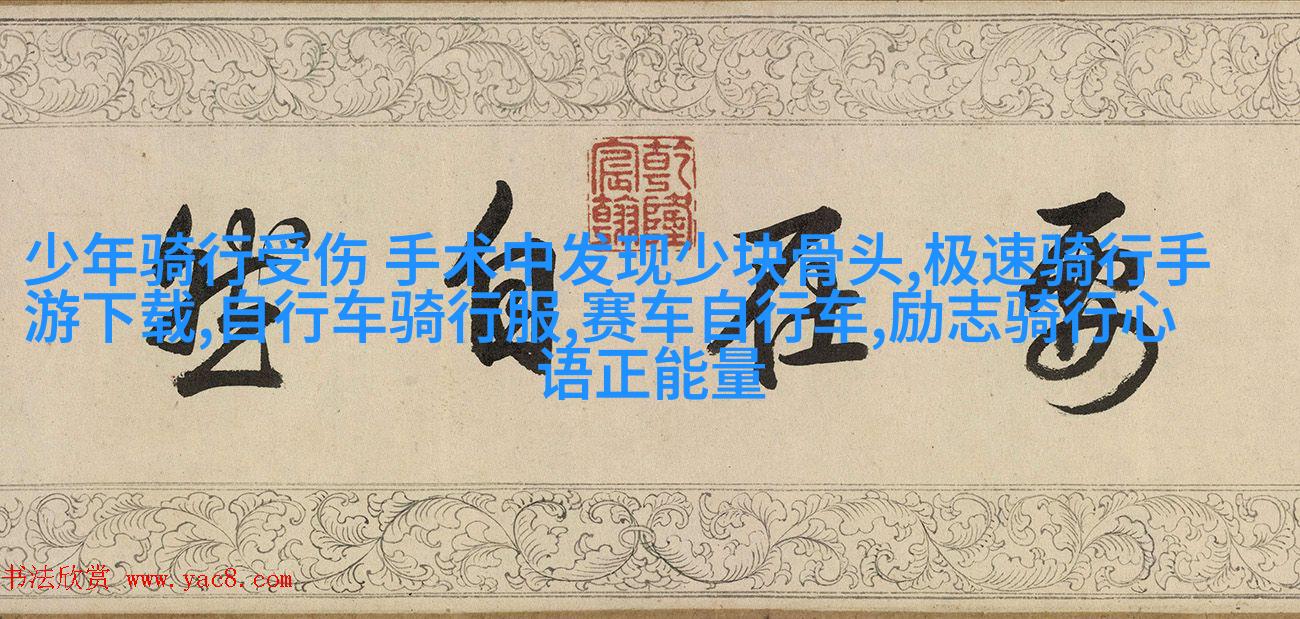 乾隆
宸翰
要在自
少年骑行受伤 手术中发现少块骨头,极速骑行手
游下载,自行车骑行服,赛车自行车,励志骑行心
语正能量
书法欣赏 www.yac8.com